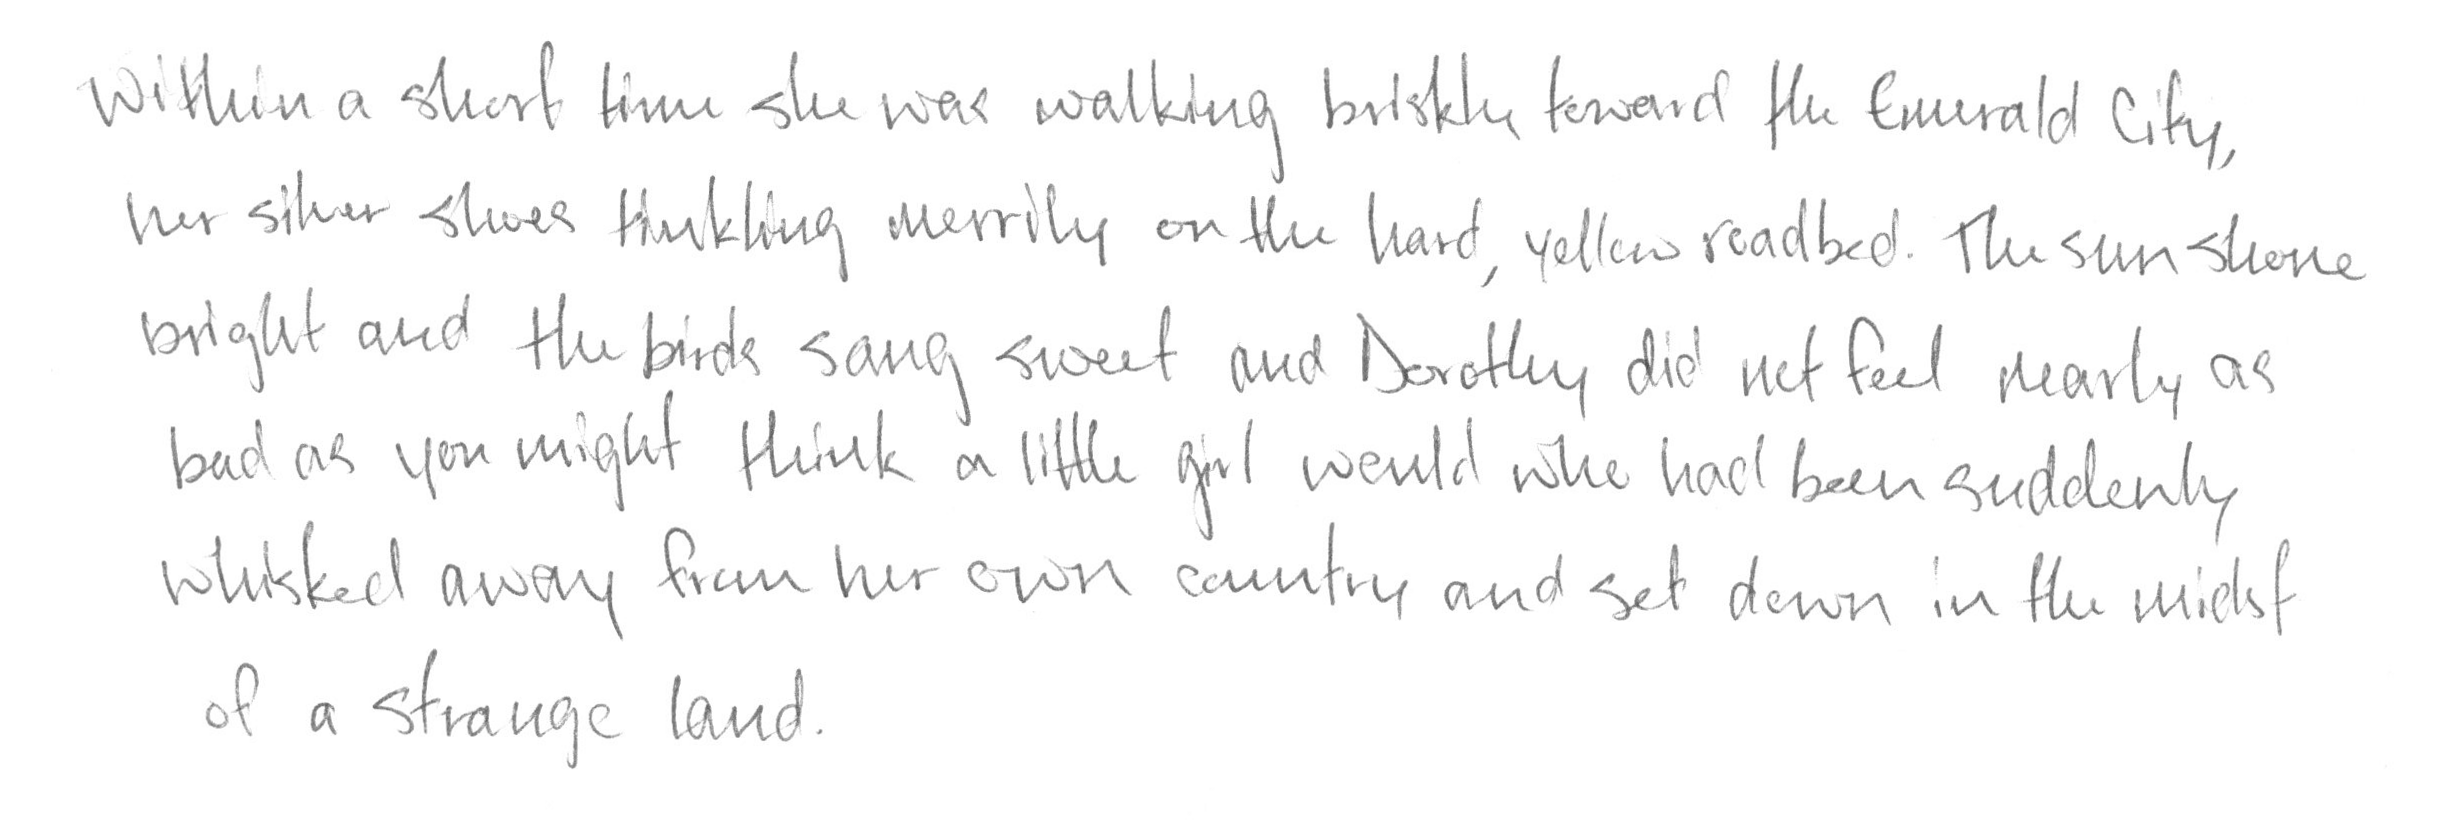 Within a short time she was walking briskly toward the Emerald City,
her silver shoes tinkling merrily on the hard, yellow roadbed. The sun shone
bright and the birds sang sweet and Dorothy did not feel nearly as
bad as you might think a little girl would who had been suddenly
whisked away from her own country and set down in the midst
of a strange land.